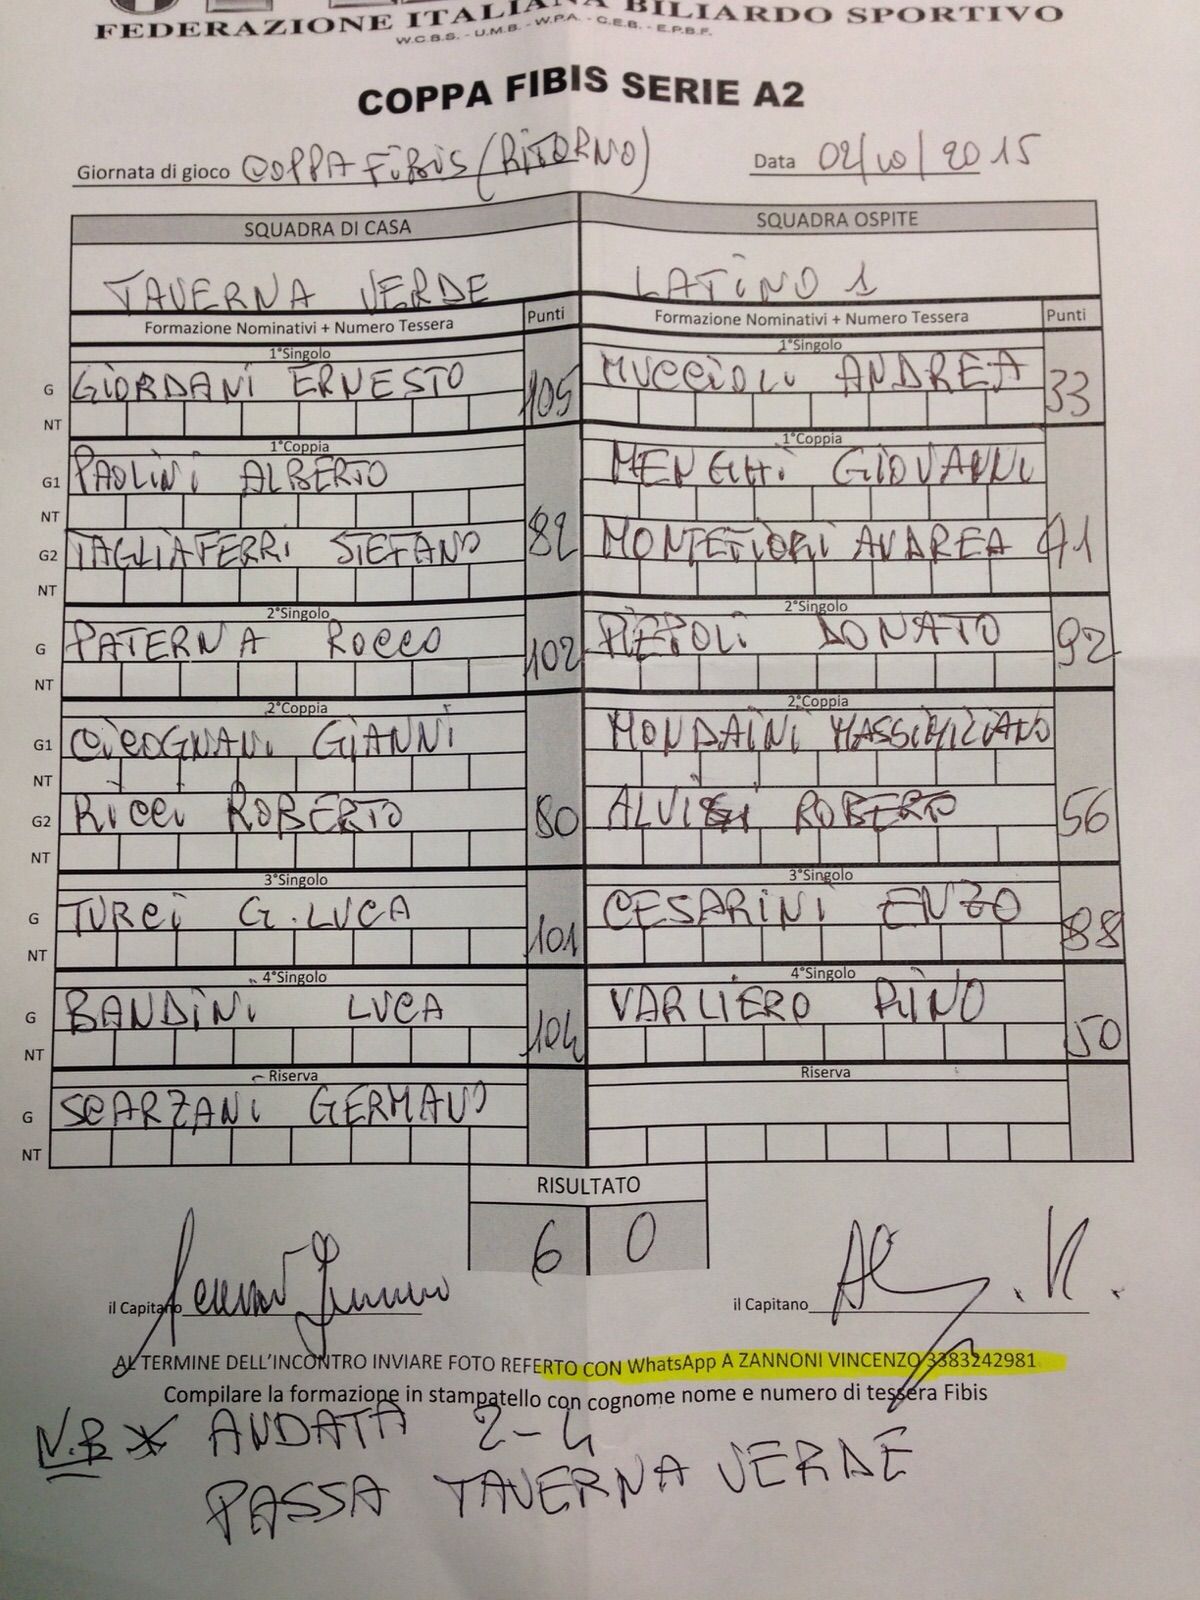 FEDERAZIONE ITALIANA BILIARDO SPORTIVO
W.C.B.S. - U.M.B. - W.P.A. - C.E.B. - E.P.B.F.
COPPA FIBIS SERIE A2
Giornata di gioco COPPA FIBIS (RITORNO) Data 02/10/2015
SQUADRA DI CASA SQUADRA OSPITE
TAVERNA VERDE LATINO 1
Formazione Nominativi + Numero Tessera Punti Formazione Nominativi + Numero Tessera Punti
1°Singolo 1°Singolo
G GIORDANI ERNESTO 105 MUCCIOLI ANDREA 33
NT
1°Coppia 1°Coppia
G1 PAOLINI ALBERTO MENGHI GIOVANNI
NT
G2 TAGLIAFERRI STEFANO 82 MONTEFIORI ANDREA 41
NT
2°Singolo 2°Singolo
G PATERNA ROCCO 102 PIEPOLI DONATO 92
NT
2°Coppia 2°Coppia
G1 CICOGNANI GIANNI MONDAINI MASSIMILIANO
NT
G2 RICCI ROBERTO 80 ALVISI ROBERTO 56
NT
3°Singolo 3°Singolo
G TURCI G.LUCA 101 CESARINI ENZO 88
NT
4°Singolo 4°Singolo
G BANDINI LUCA 104 VARLIERO RINO 50
NT
Riserva Riserva
G SCARZANI GERMANO
NT
RISULTATO
6 0
il Capitano il Capitano
AL TERMINE DELL'INCONTRO INVIARE FOTO REFERTO CON WhatsApp A ZANNONI VINCENZO 3383242981
Compilare la formazione in stampatello con cognome nome e numero di tessera Fibis
N.B * ANDATA 2-4
PASSA TAVERNA VERDE